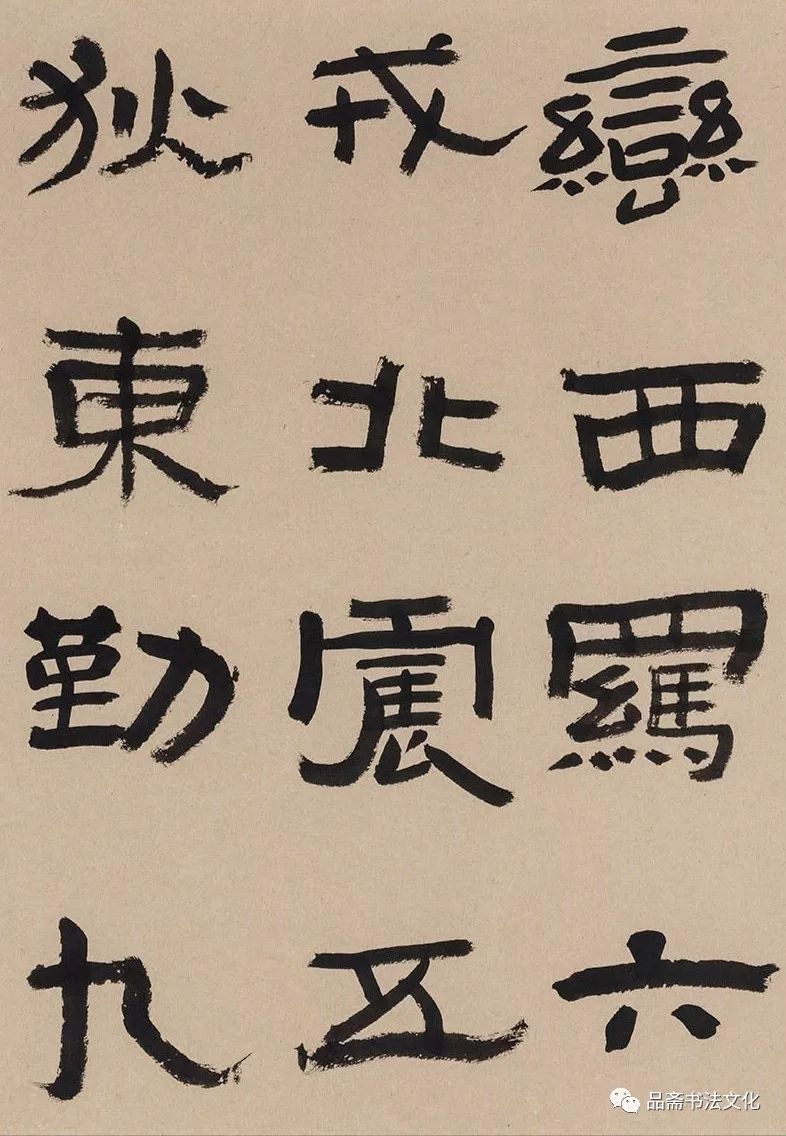 蠻西羈六
戎北震五
狄東勤九
品斋书法文化